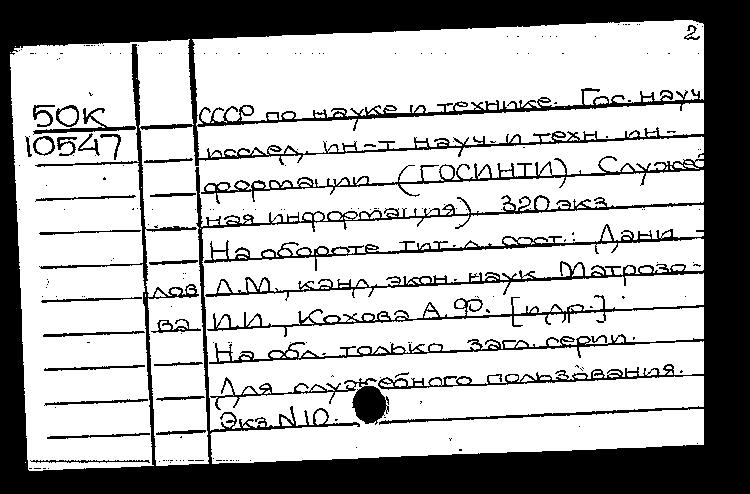 2
50К
10547
СССР по науке и технике. Гос. науч
исслед. ин-т науч. и техн. ин-
формации (ГОСИНТИ). Служеб
ная информация). 320 экз.
На обороте тит. л. сост.: Дани -
лов Л.М., канд. экон. наук Матрозо-
ва И.И., Кохова А.Ф. [и др.].
На обл. только загл. серии.
Для служебного пользования.
Экз. N 10.